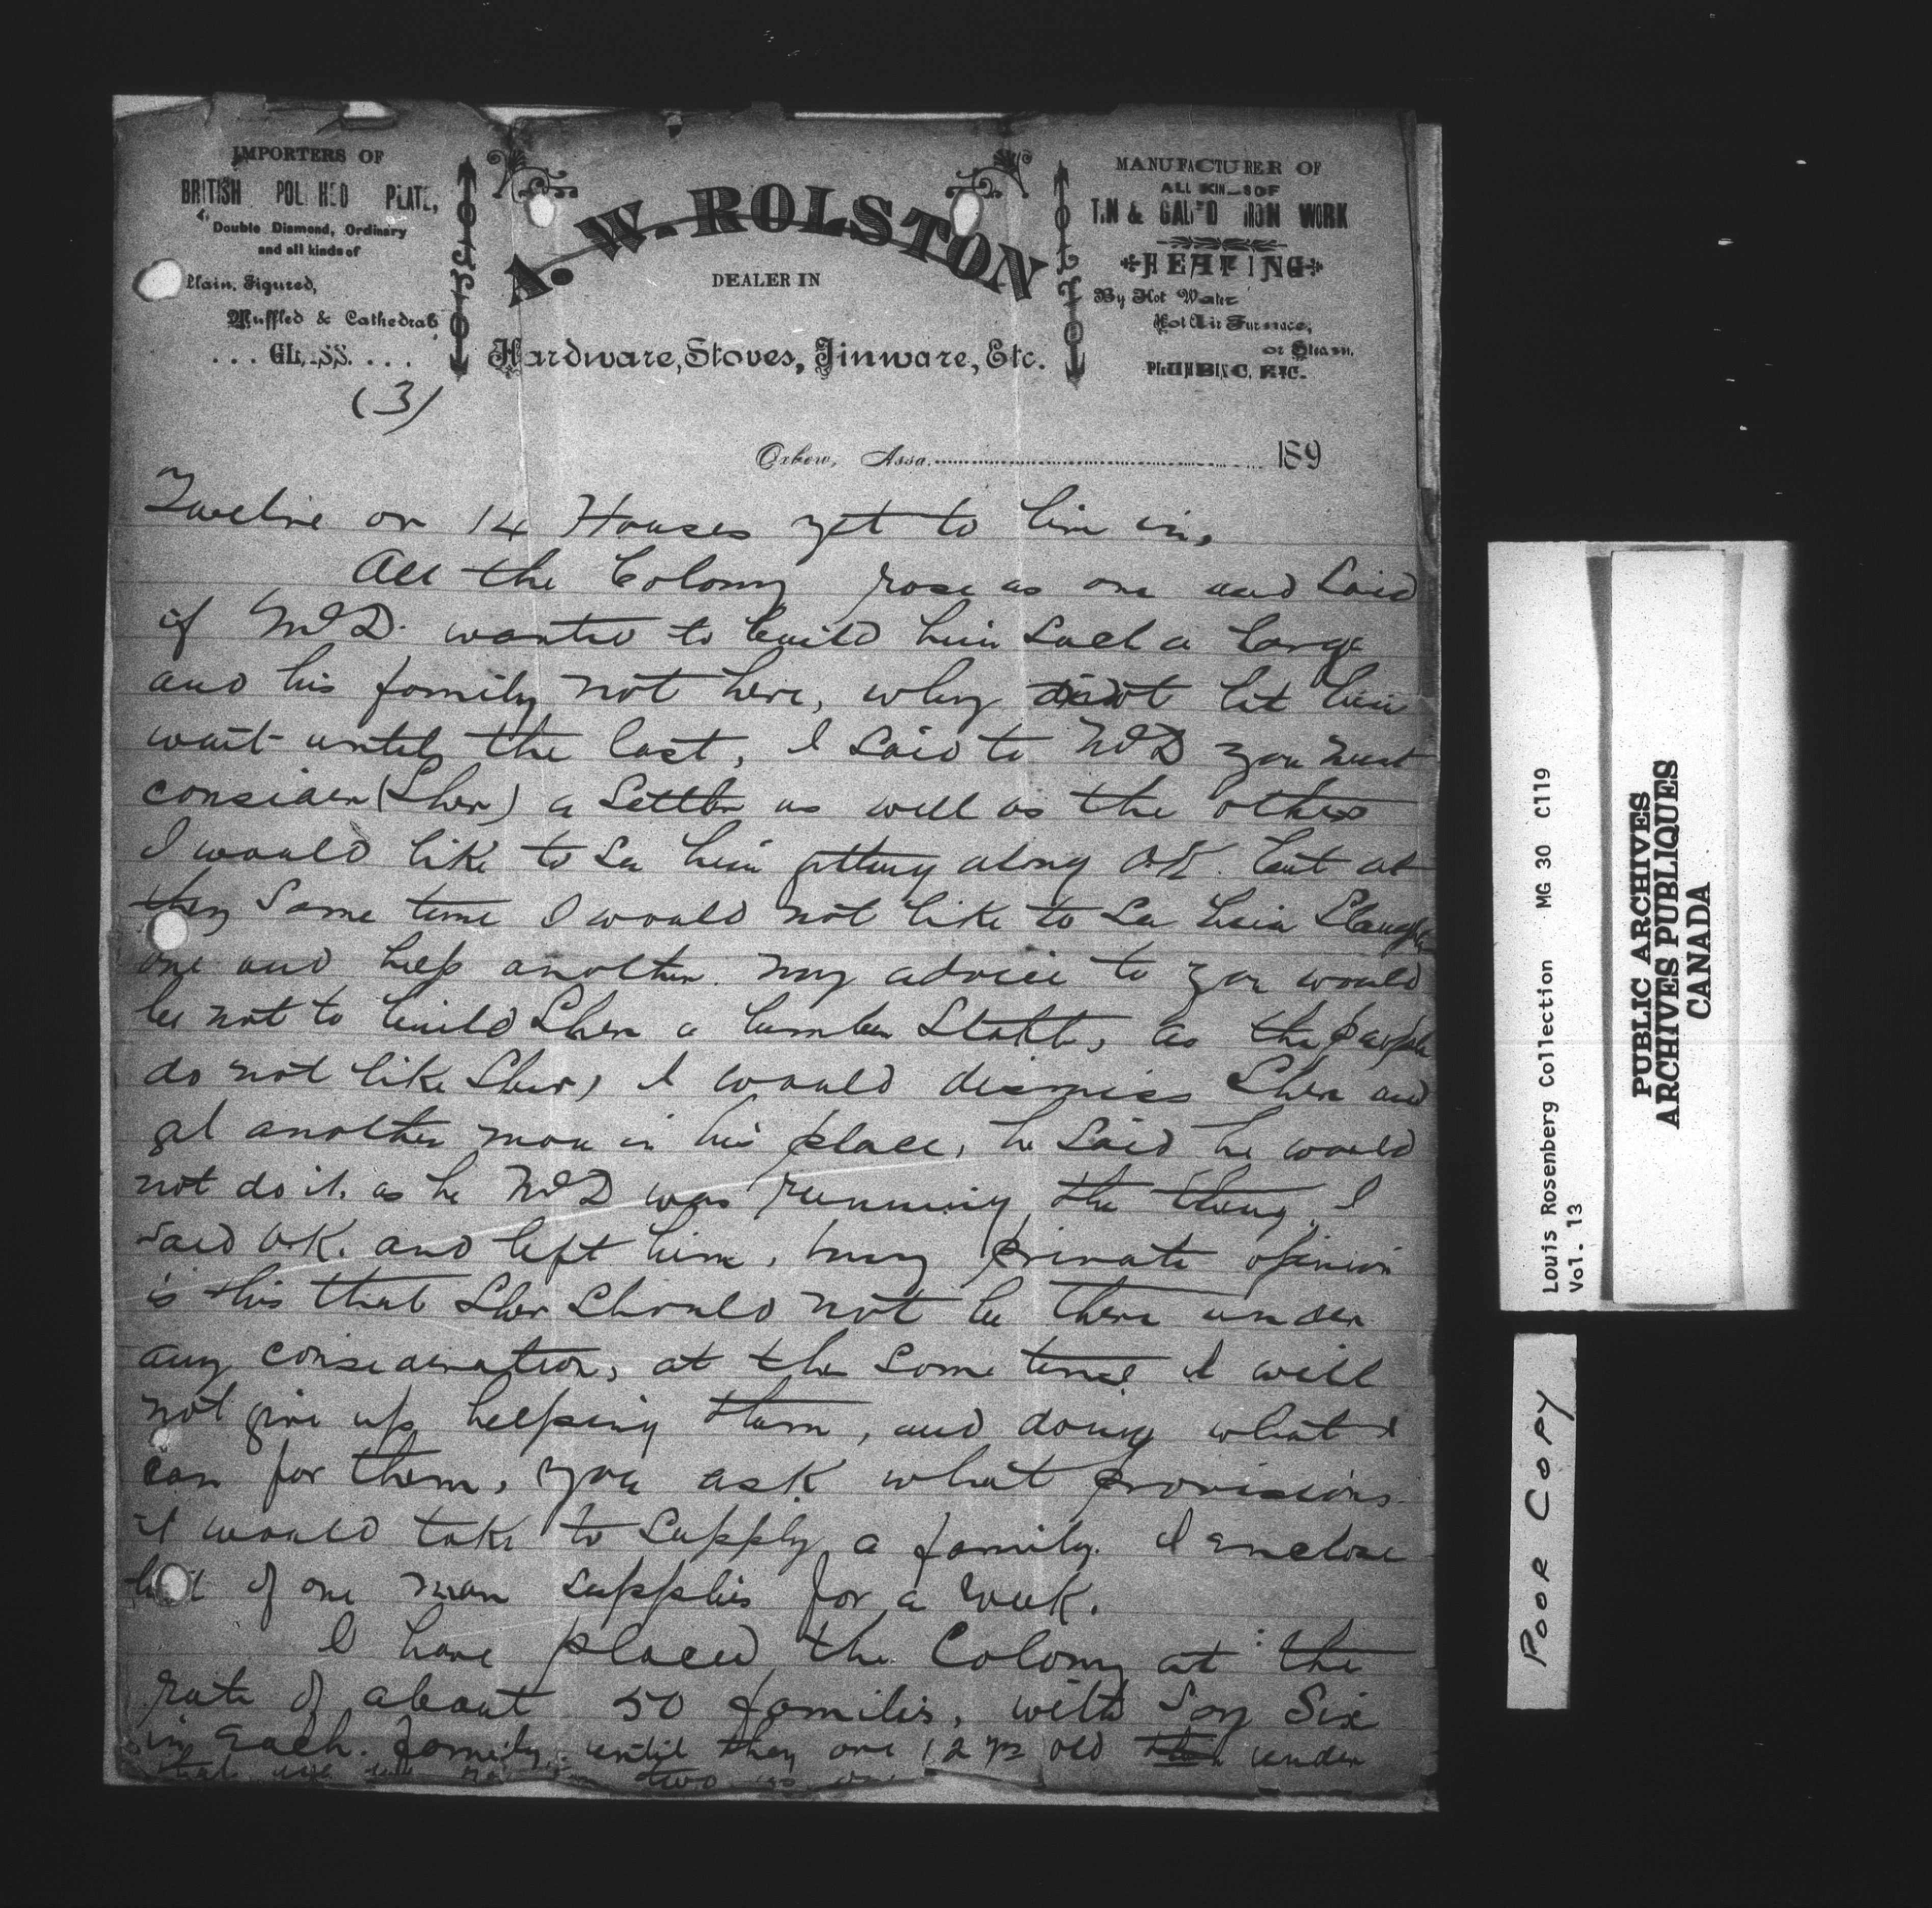 IMPORTERS OF
BRITISH POLISHED PLATE,
Double Diamond, Ordinary
and all kinds of
Plain, Figured,
Muffled & Cathedral
... GLASS. ...
A. W. ROLSTON
DEALER IN
Hardware, Stoves, Tinware, Etc.
MANUFACTURER OF
ALL KINDS OF
TIN & GALV'D IRON WORK
HEATING
By Hot Water
Hot Air Furnace,
or Steam.
PLUMBING, ETC.
(3)
Oxbow, Assa. 189
Twelve or 14 Houses yet to live in,
All the Colony rose as one and Said
if McD. wanted to build him Such a large
and his family not here, why didnt let him
wait until the last, I Said to McD you must
consider (Sher) a Settler as well as the others
I would like to See him getting along O.K. but at
they Same time I would not like to See him Slaughter
one and help another. my advice to you would
be not to build Sher a lumber Stable, as the people
do not like Sher, I would dismiss Sher and
get another man in his place, he Said he would
not do it. as he McD was running the thing, I
Said O.K. and left him, my private opinion
is this that Sher Should not be there under
any consideration, at the Same time I will
not give up helping them, and doing what I
can for them, you ask what provisions
it would take to Supply a family. I enclose
list of one man supplies for a week.
I have placed the Colony at the
rate of about 50 familis, with Say Six
in Each family, until they are 12 yrs old under
that we two as one
Louis Rosenberg Collection MG 30 C119
Vol. 13
PUBLIC ARCHIVES
ARCHIVES PUBLIQUES
CANADA
POOR COPY